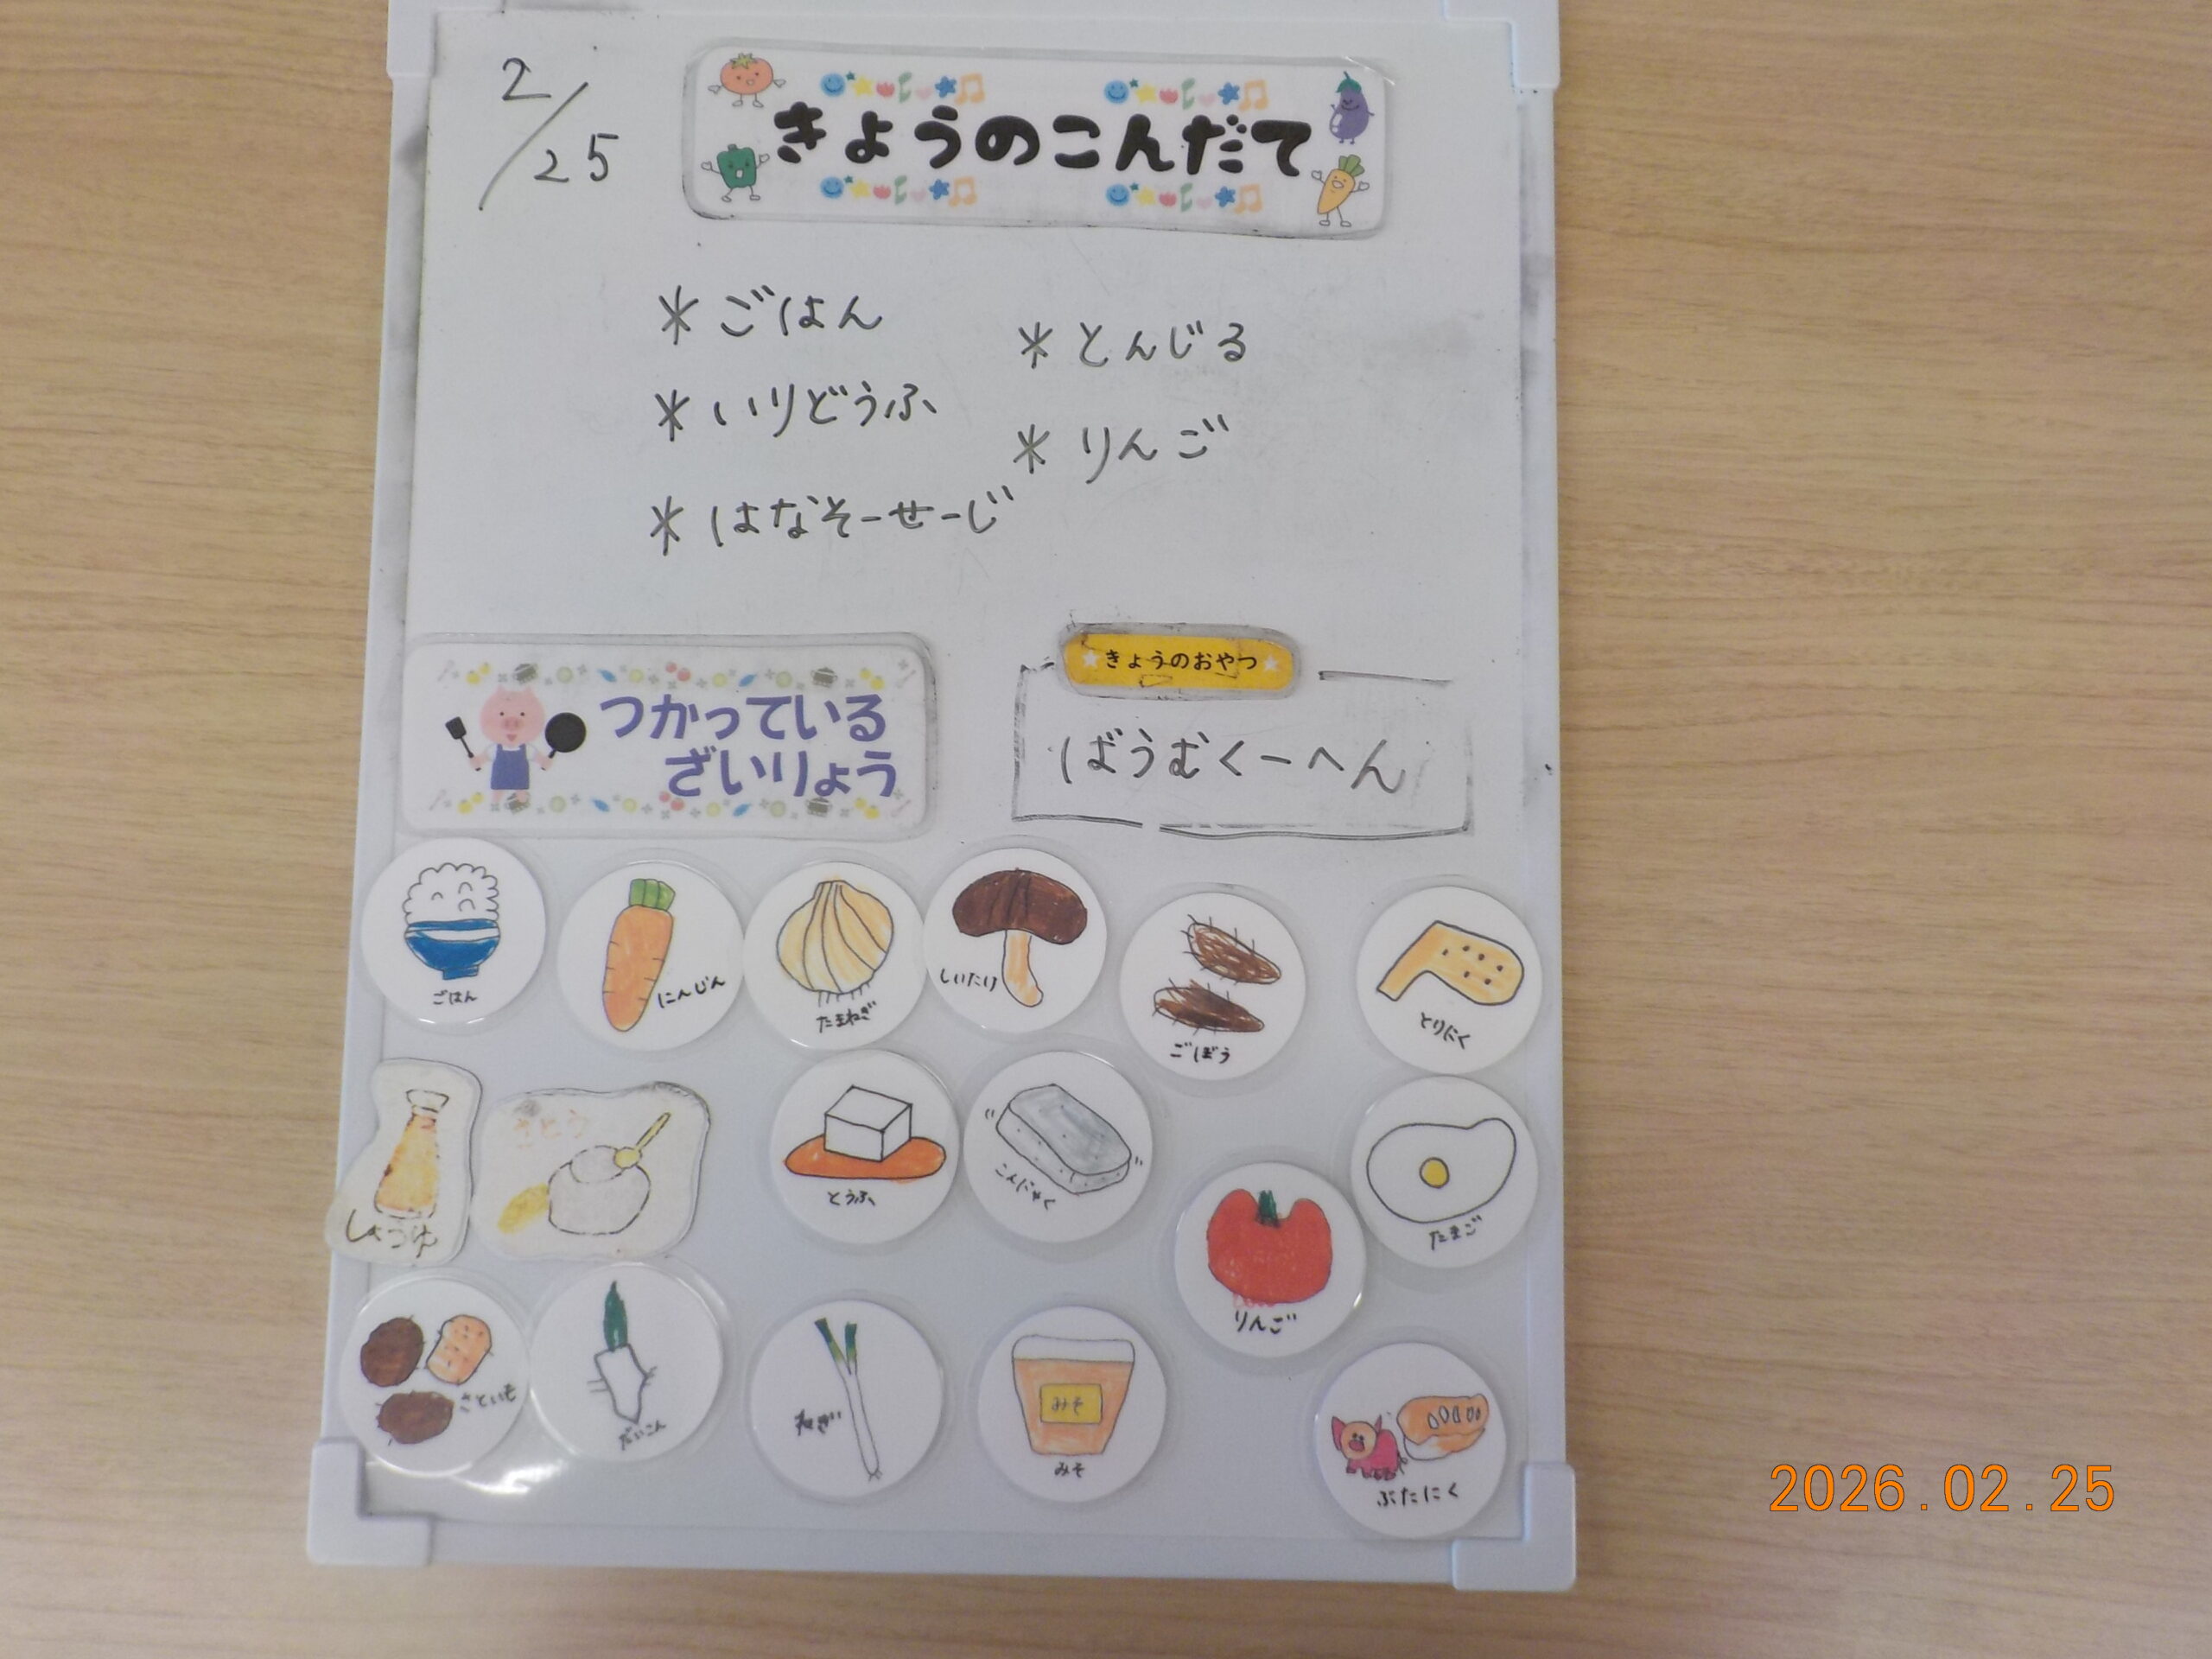 2/25
きょうのこんだて
＊ごはん
＊いりどうふ
＊はなそーせーじ
＊とんじる
＊りんご
つかっている
ざいりょう
きょうのおやつ
ばうむくーへん
ごはん
にんじん
たまねぎ
しいたけ
ごぼう
とりにく
しょうゆ
さとう
とうふ
こんにゃく
りんご
たまご
さといも
だいこん
ねぎ
みそ
みそ
ぶたにく
2026.02.25